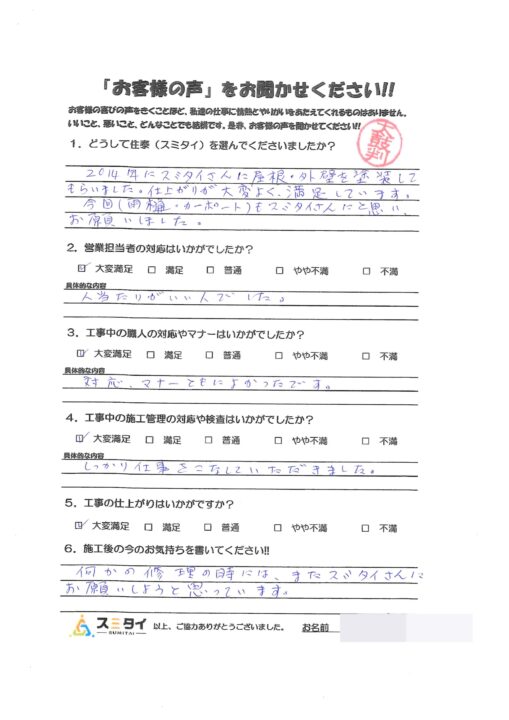 「お客様の声」をお聞かせください!!
お客様の喜びの声をきくことほど、私達の仕事に情熱とやりがいをあたえてくれるものはありません。
いいこと、悪いこと、どんなことでも結構です。是非、お客様の声を聞かせてください!!
太鼓判
1．どうして住泰（スミタイ）を選んでくださいましたか？
2014年にスミタイさんに屋根・外壁を塗装して
もらいました。仕上がりが大変よく、満足しています。
今回(雨樋・カーポート)もスミタイさんにと思い、
お願いしました。
2．営業担当者の対応はいかがでしたか？
☑ 大変満足 □ 満足 □ 普通 □ やや不満 □ 不満
具体的な内容
人当たりがいい人でした。
3．工事中の職人の対応やマナーはいかがでしたか？
☑ 大変満足 □ 満足 □ 普通 □ やや不満 □ 不満
具体的な内容
対応、マナーともによかったです。
4．工事中の施工管理の対応や検査はいかがでしたか？
☑ 大変満足 □ 満足 □ 普通 □ やや不満 □ 不満
具体的な内容
しっかり仕事をこなしていただきました。
5．工事の仕上がりはいかがですか？
☑ 大変満足 □ 満足 □ 普通 □ やや不満 □ 不満
6．施工後の今のお気持ちを書いてください!!
何かの修理の時には、またスミタイさんに
お願いしようと思っています。
スミタイ SUMITAI 以上、ご協力ありがとうございました。 お名前